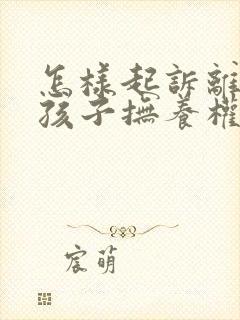 怎樣起訴離
孩子撫養權
宸萌